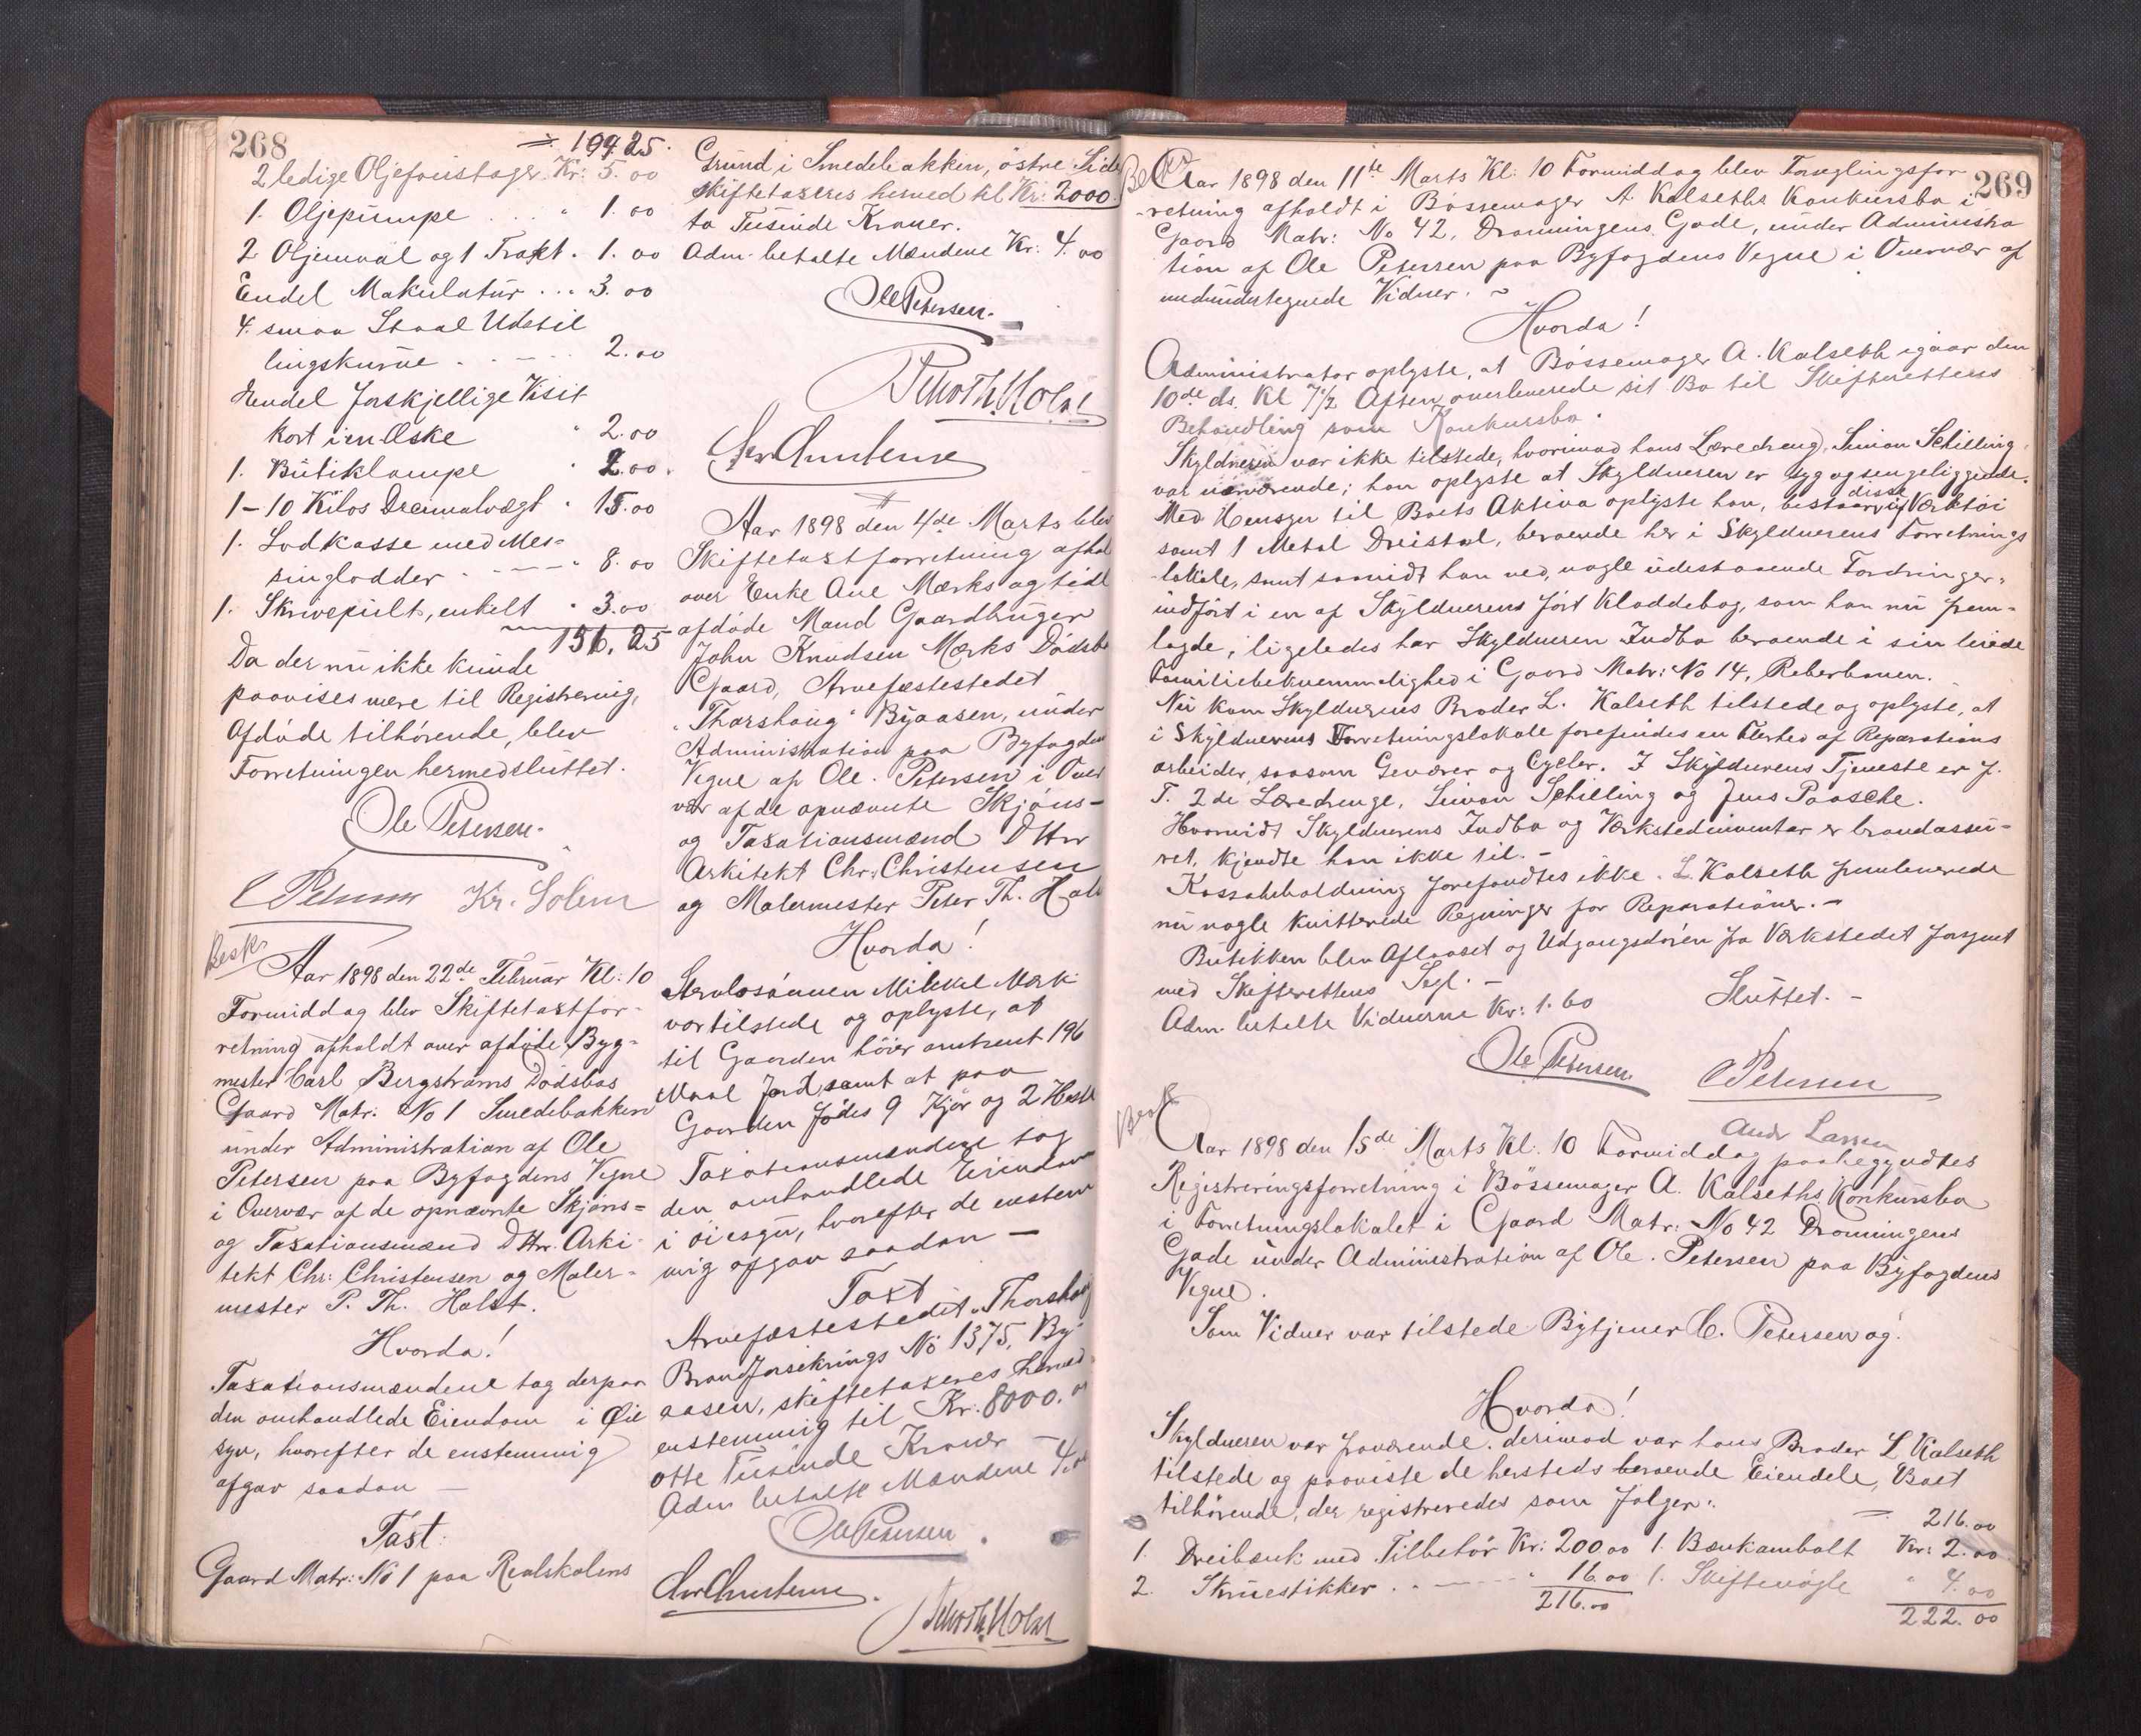 268
÷ 109.25.
2 ledige Oljefoustager Kr: 5.00
1. Oljepumpe . . . " 1.00
2 Oljemaal og 1 Trakt . 1.00
Endel Makulatur . . . 3.00
4. smaa Staal Udstil
lingskurve . . . . . 2.00
Hendel forskjellige Visit
kort i en Æske " 2.00
1. Butiklampe " 2.00.
1-10 Kilos Decimalvægt " 15.00
1. Lodkasse med Mes=
singlodder . . . . " 8.00
1. Skrivepult, enkelt " 3.00
156,25
Da der nu ikke kunde
paavises mere til Registrering,
Afdöde tilhörende, blev
Forretningen hermed sluttet.
Ole Petersen.
C Petersen Kr. Solem
Besk.
Aar 1898 den 22de Februar Kl: 10
Formiddag blev Skiftetaxtfor-
retning afholdt over afdöde Byg=
mester Carl Bergströms Dödsbos
Gaard Matr: No 1 Smedebakken
under Administration af Ole
Petersen paa Byfogdens Vegne
i Overvær af de opnævnte Skjöns=
og Taxationsmænd DHrr. Arki-
tekt Chr: Christensen og Maler=
mester P. Th. Holst.
Hvorda!
Taxationsmændene tog derpaa
den omhandlede Eiendom i Öie
syn, hvorefter de enstemmig
afgav saadan —
Taxt:
Gaard Matr: No 1 paa Realskolens
Grund i Smedebakken, östre Side
skiftetaxeres herved til Kr: 2000.
to Tusinde Kroner.
Adm. betalte Mændene Kr: 4.00
Ole Petersen.
Peter Th. Holst
Chr Christensen
Aar 1898 den 4de Marts blev
Skiftetaxtforretning afhol
over Enke Ane Mærks og tidl
afdöde Mand Gaardbruger
John Knudsen Mærks Dödsbo
Gaard, Arvefæstestedet
"Thorshaug" Byaasen, under
Administration paa Byfogden
Vegne af Ole. Petersen i Over
vær af de opnævnte Skjöns-
og Taxationsmænd DHrr
Arkitekt Chr: Christensen
og Malermester Peter Th. Hols
Hvorda!
Stervbosönnen Mikkel Mærk
var tilstede og oplyste, at
til Gaarden hörer omtrent 196
Maal Jord samt at paa
Gaarden födes 9 Kjör og 2 Heste
Taxationsmændene tog
den omhandlede Eiendom
i öiesyn, hvorefter de enstem
mig afgav saadan —
Taxt
Arvefæstestedet "Thorshaug
Brandforsikrings No 1375, By
aasen, skiftetaxeres herved
enstemmig til Kr: 8000.00
otte Tusinde Kroner —
Adm betalte Mændene 4.00
Ole Petersen.
Chr Christensen.
Peter Th. Holst
269
Besk
Aar 1898 den 11te Marts Kl: 10 Formiddag blev Forseglingsfor
-retning afholdt i Bössemager A. Kalseths Konkursbo i
Gaard Matr: No 42, Dronningens Gade, under Administra
tion af Ole Petersen paa Byfogdens Vegne i Overvær af
medundertegnede Vidner. ~
Hvorda!
Administrator oplyste, at Bössemager A. Kalseth igaar den
10de ds. Kl 7½ Aften overleverede sit Bo til Skifterettens
Behandling som Konkursbo.
Skyldneren var ikke tilstede, hvorimod hans Læredreng, Simon Schilling,
var nærværende; han oplyste at Skyldneren er syg og sengeliggende.
Med Hensyn til Boets Aktiva oplyste han, bestaar disse i Værktöi
samt 1 Metal Dreistol, beroende her i Skyldnerens Forretnings
-lokale, samt saavidt han ved, nogle udestaaende Fordringer,
indfört i en af Skyldneren fört Kladdebog, som han nu frem-
lagde, ligeledes har Skyldneren Indbo beroende i sin leiede
Familiebekvemmelighed i Gaard Matr: No 14, Reberbanen.
Nu kom Skyldnerens Broder L. Kalseth tilstede og oplyste, at
i Skyldnerens Forretningslokale forefindes en Flerhed af Reparations
arbeider, saasom Geværer og Cycler. I Skyldnerens Tjeneste er f.
T. 2de Læredrenge, Simon Schilling og Jens Paasche.
Hvorvidt Skyldnerens Indbo og Verkstedinventar er brandassu-
ret, kjendte han ikke til. -
Kassabeholdning forefandtes ikke. L. Kalseth fremleverede
nu nogle kvitterede Regninger for Reparationer. -
Butikken blev Aflaaset og Udgangsdören fra Værkstedet forsynet
med Skifterettens Segl. -
Adm. betalte Vidnerne Kr: 1.60 Sluttet. -
Ole Petersen. C Petersen
Andr Larsen
Besk
Aar 1898 den 15de Marts Kl: 10 Formiddag paabegyndtes
Registreringsforretning i Bössemager A. Kalseths Konkursbo
i Forretningslokalet i Gaard Matr: No 42 Dronningens
Gade under Administration af Ole. Petersen paa Byfogdens
Vegne.
Som Vidner var tilstede Bytjener C. Petersen og.
Hvorda!
Skyldneren var fraværende. derimod var hans Broder L. Kalseth
tilstede og paaviste de hersteds beroende Eiendele, Boet
tilhörende, der registreredes som fölger:
÷ 216.00
1. Dreibænk med Tilbehör Kr: 200.00 1. Bænkambolt Kr: 2.00
2. Skruestikker . . . . . " 16.00 1. Skiftenögle " 4.00
216.00 222.00